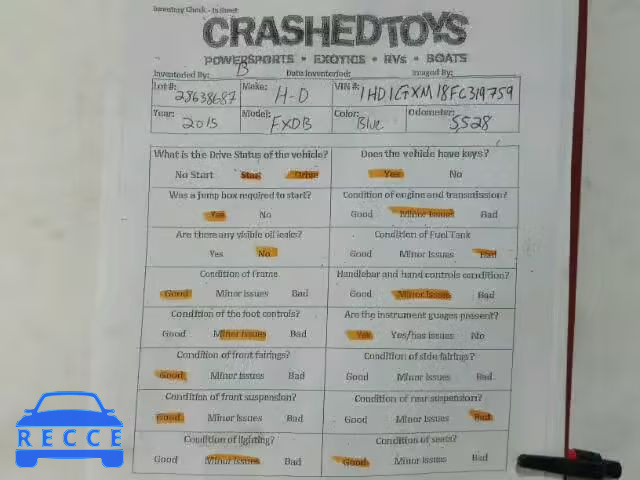 Inventory Check - In Sheet
CRASHEDTOYS
POWERSPORTS • EXOTICS • RVs • BOATS
Inventoried By: B Date Inventoried: Imaged By:
Lot#: 28638687 Make: H-D VIN #: 1HD1GXM18FC319759
Year: 2015 Model: FXDB Color: Blue Odometer: 5528
What is the Drive Status of the vehicle? Does the vehicle have keys?
No Start Start Drive Yes No
Was a jump box required to start? Condition of engine and transmission?
Yes No Good Minor Issues Bad
Are there any visible oil leaks? Condition of Fuel Tank
Yes No Good Minor Issues Bad
Condition of frame Handlebar and hand controls condition?
Good Minor Issues Bad Good Minor Issues Bad
Condition of the foot controls? Are the instrument guages present?
Good Minor Issues Bad Yes Yes/has issues No
Condition of front fairings? Condition of side fairings?
Good Minor Issues Bad Good Minor Issues Bad
Condition of front suspension? Condition of rear suspension?
Good Minor Issues Bad Good Minor Issues Bad
Condition of lighting? Condition of seats?
Good Minor Issues Bad Good Minor Issues Bad
RECCE